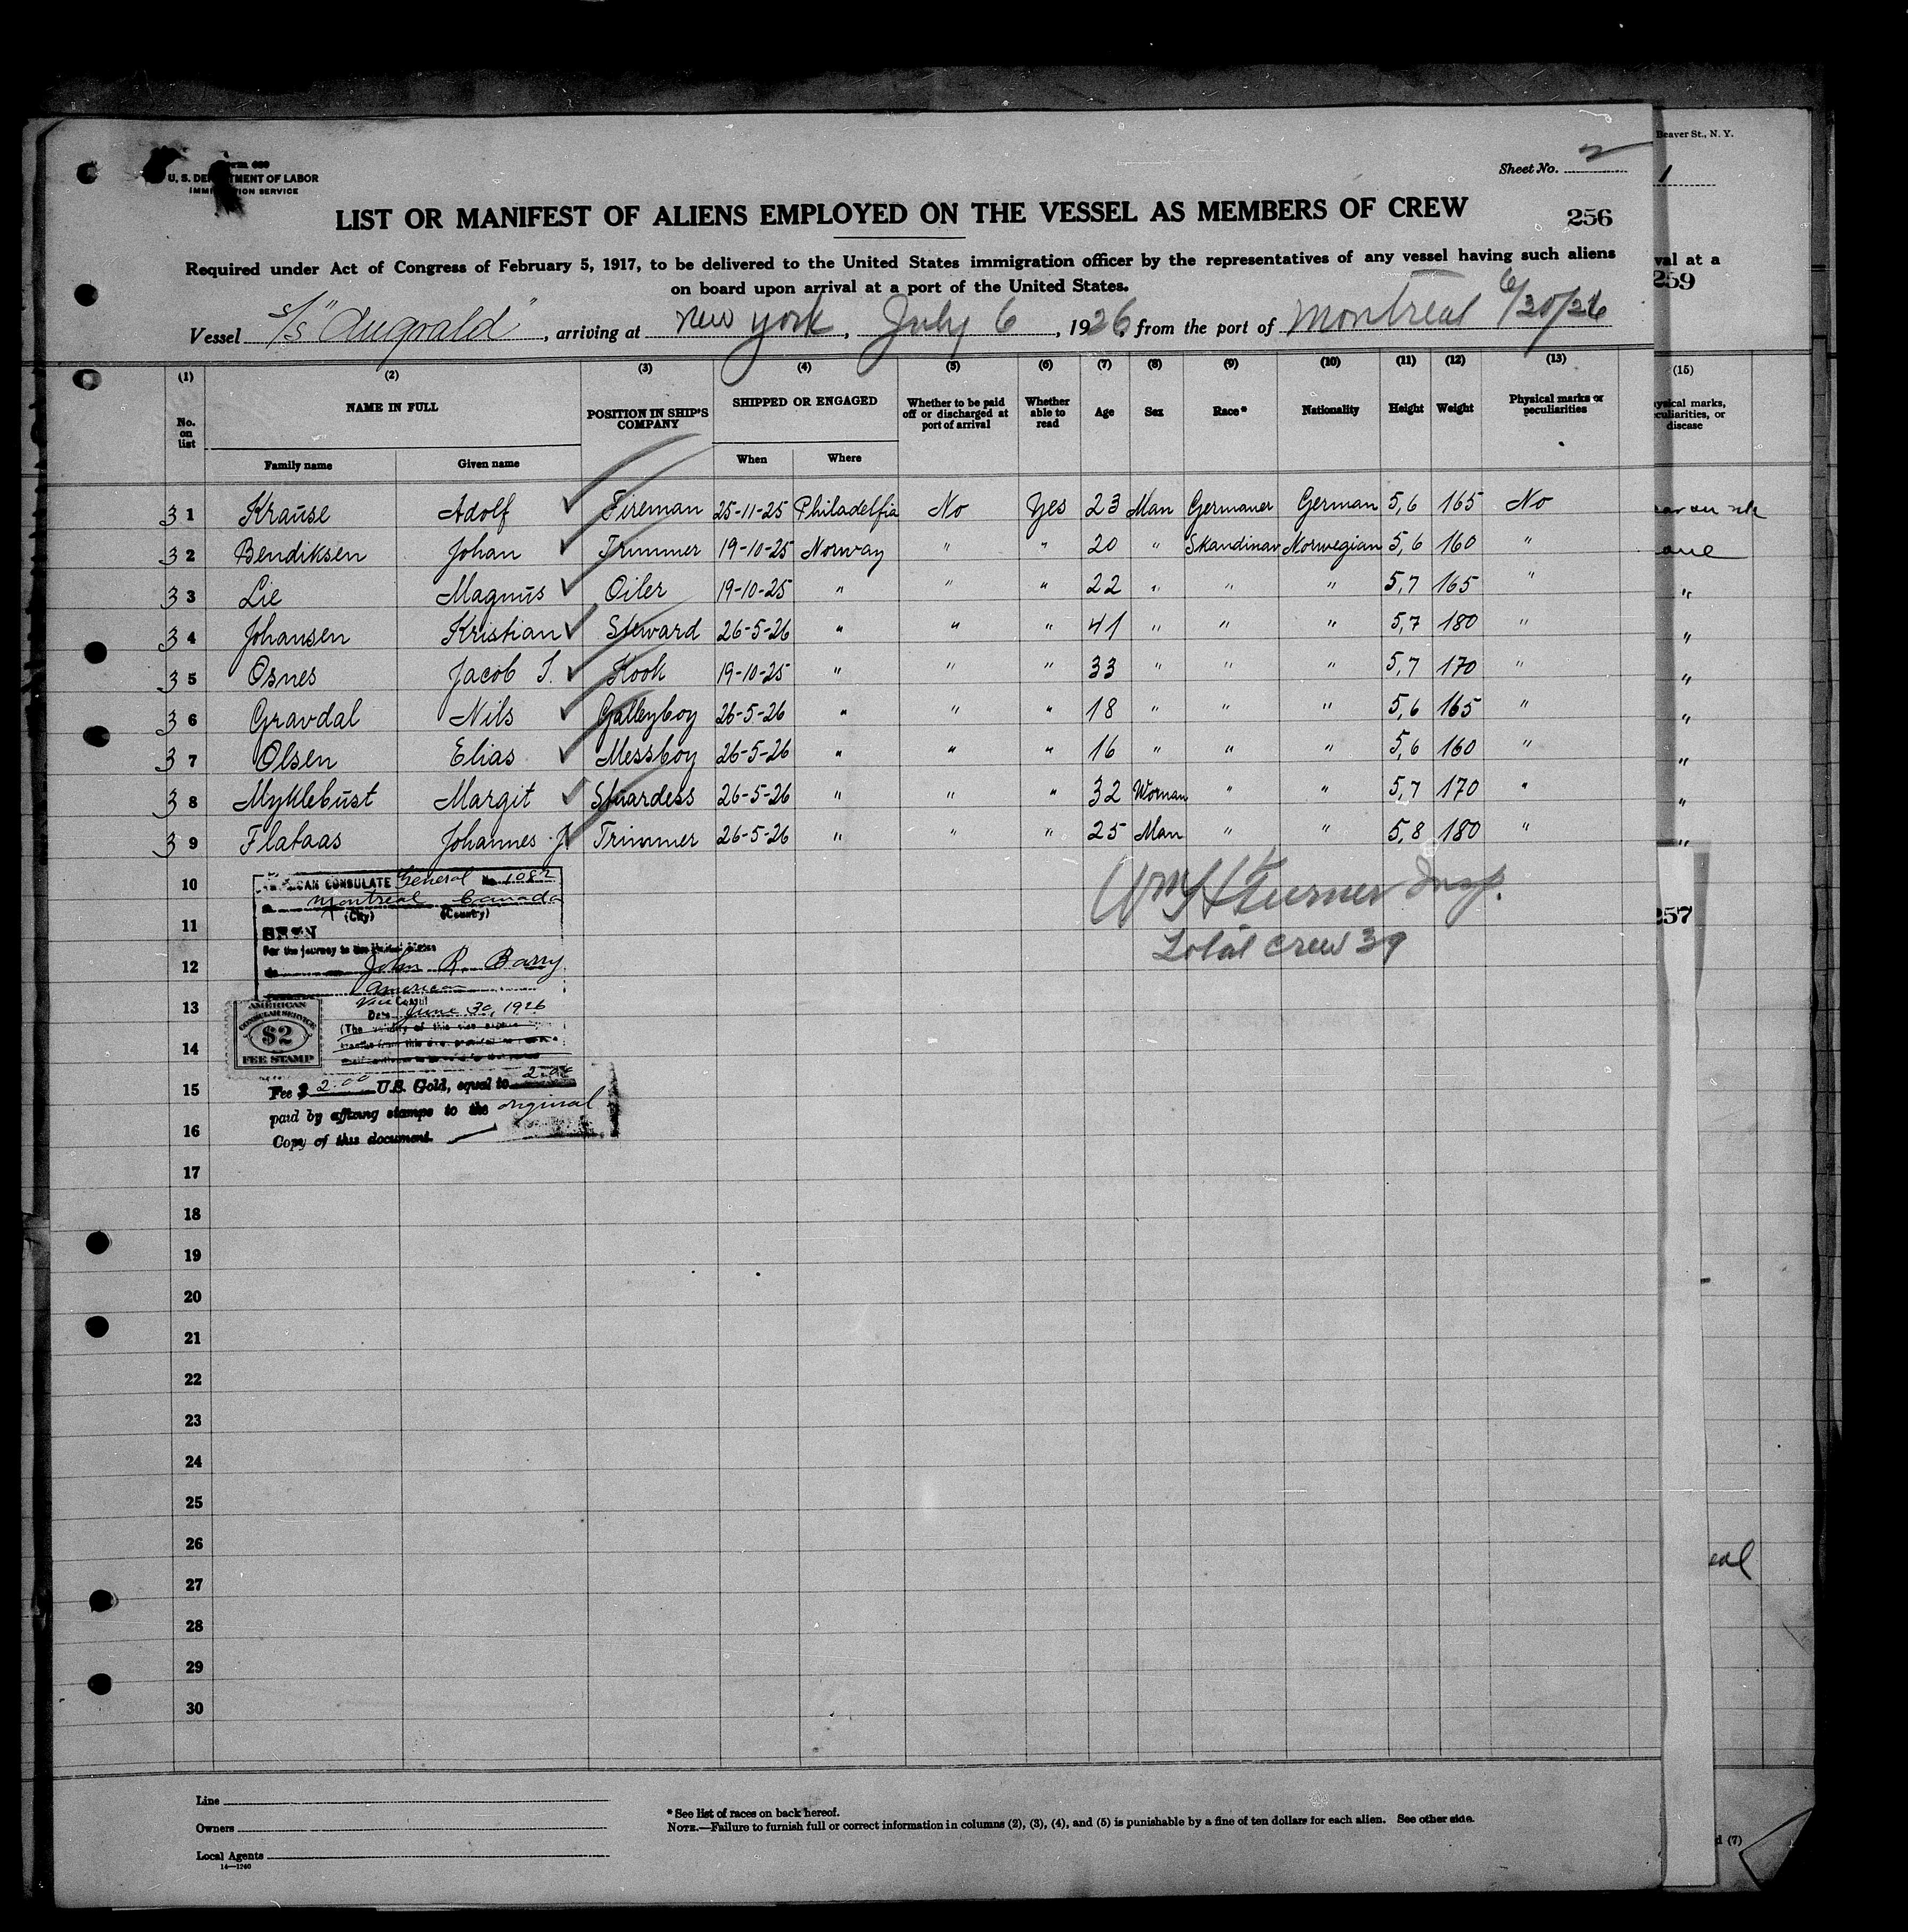 Beaver St., N. Y.
Form 680
U. S. DEPARTMENT OF LABOR
IMMIGRATION SERVICE
Sheet No. 2
1
LIST OR MANIFEST OF ALIENS EMPLOYED ON THE VESSEL AS MEMBERS OF CREW
256
Required under Act of Congress of February 5, 1917, to be delivered to the United States immigration officer by the representatives of any vessel having such aliens
on board upon arrival at a port of the United States.
val at a
259
Vessel S/S "Augvald", arriving at New York, July 6, 1926, from the port of Montreal 6/30/26
(1) (2) (3) (4) (5) (6) (7) (8) (9) (10) (11) (12) (13) (15)
No. on list NAME IN FULL POSITION IN SHIP'S COMPANY SHIPPED OR ENGAGED Whether to be paid off or discharged at port of arrival Whether able to read Age Sex Race* Nationality Height Weight Physical marks or peculiarities
ysical marks, culiarities, or disease
Family name Given name When Where
31 Krause Adolf Fireman 25-11-25 Philadelfia No Yes 23 Man Germaner German 5,6 165 No
32 Bendiksen Johan Trimmer 19-10-25 Norway " " 20 " Skandinav Norwegian 5,6 160 "
33 Lie Magnus Oiler 19-10-25 " " " 22 " " " 5,7 165 "
34 Johansen Kristian Steward 26-5-26 " " " 41 " " " 5,7 180 "
35 Osnes Jacob I. Kook 19-10-25 " " " 33 " " " 5,7 170 "
36 Gravdal Nils Galleyboy 26-5-26 " " " 18 " " " 5,6 165 "
37 Olsen Elias Messboy 26-5-26 " " " 16 " " " 5,6 160 "
38 Myklebust Margit Stuardess 26-5-26 " " " 32 Woman " " 5,7 170 "
39 Flataas Johannes J. Trimmer 26-5-26 " " " 25 Man " " 5,8 180 "
10
11
12
13
14
15
16
17
18
19
20
21
22
23
24
25
26
27
28
29
30
AMERICAN CONSULATE General No. 1082
Montreal Canada
(City) (Country)
SEEN
For the journey to the United States
John R. Barry
American
Vice Consul
Date June 30, 1926
(The validity of this
AMERICAN
CONSULAR SERVICE
$2
FEE STAMP
Fee $ 2.00 U.S. Gold, equal to 2.00
paid by affixing stamps to the original
Copy of this document.
Wm H Turner Insp.
Total crew 39
257
Line
Owners
Local Agents
14—1240
* See list of races on back hereof.
NOTE.—Failure to furnish full or correct information in columns (2), (3), (4), and (5) is punishable by a fine of ten dollars for each alien. See other side.
d (7)